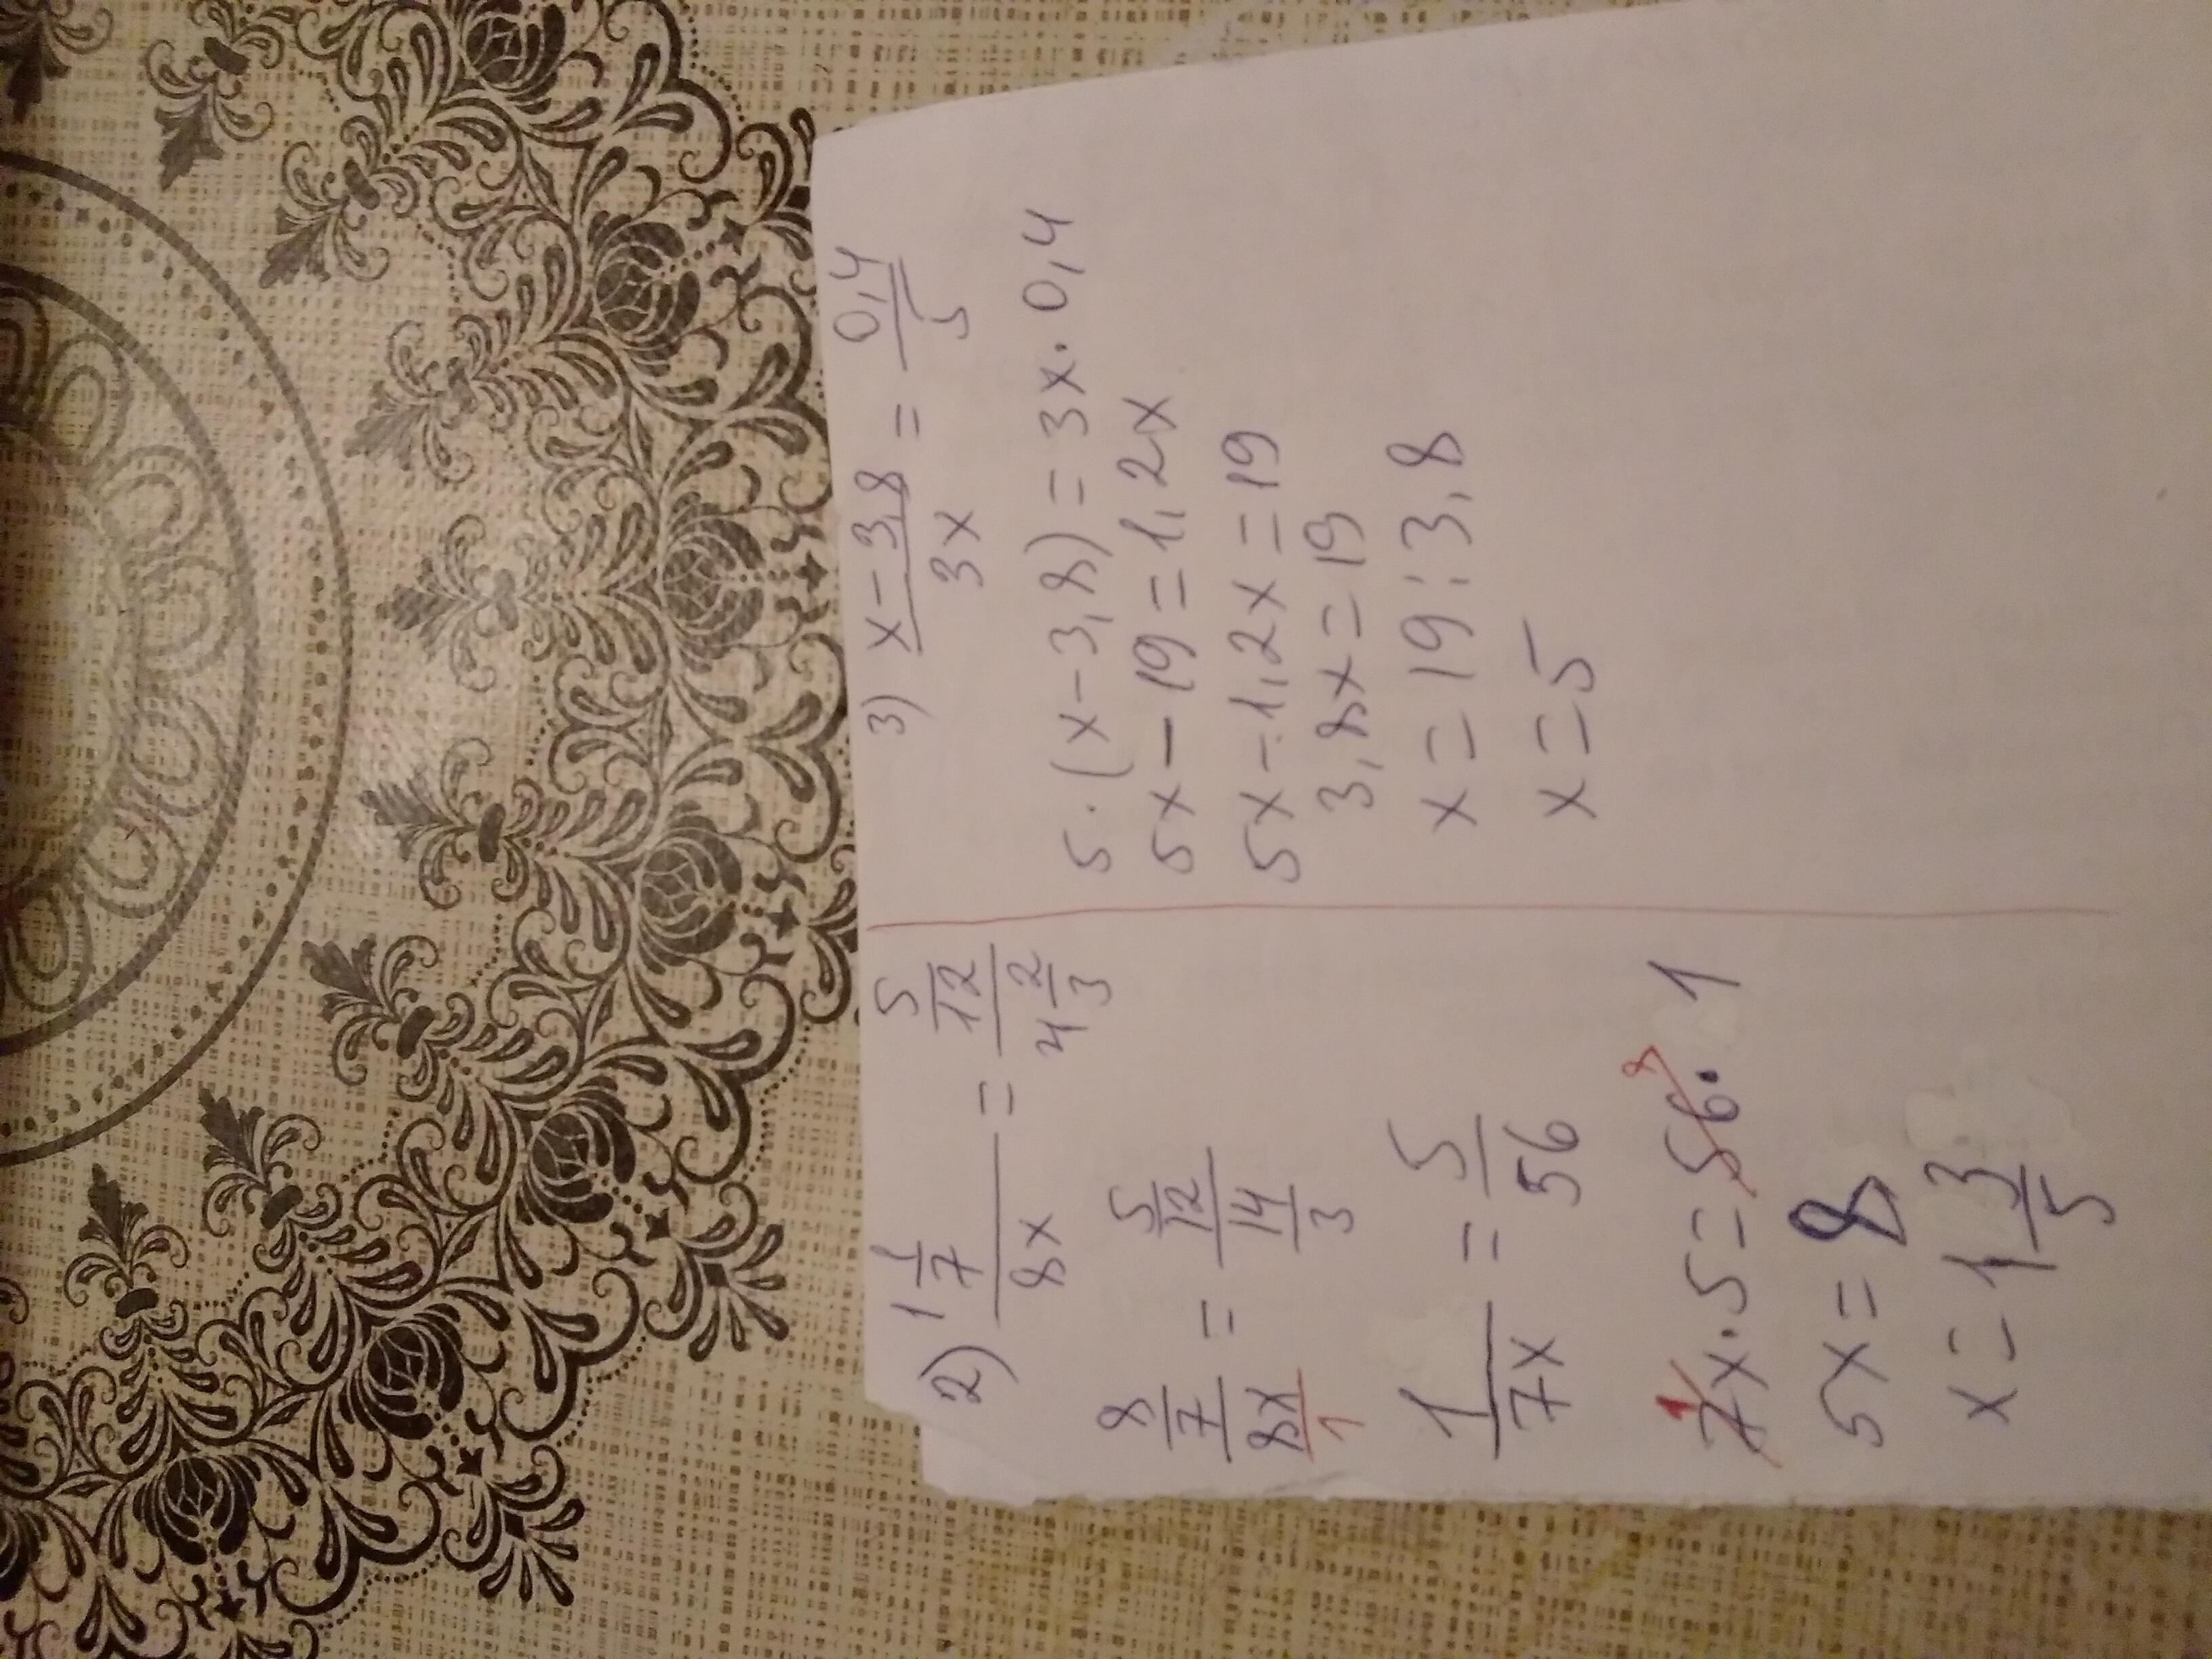 2) 1 1/7 / 8x = 5/12 / 4 2/3
8/7 / 8x/1 = 5/12 / 14/3
1/7x = 5/56
7x · 5 = 56 · 1
1 8
5x = 8
x = 1 3/5
3) x - 3,8 / 3x = 0,4/5
5 · (x - 3,8) = 3x · 0,4
5x - 19 = 1,2x
5x - 1,2x = 19
3,8x = 19
x = 19 : 3,8
x = 5